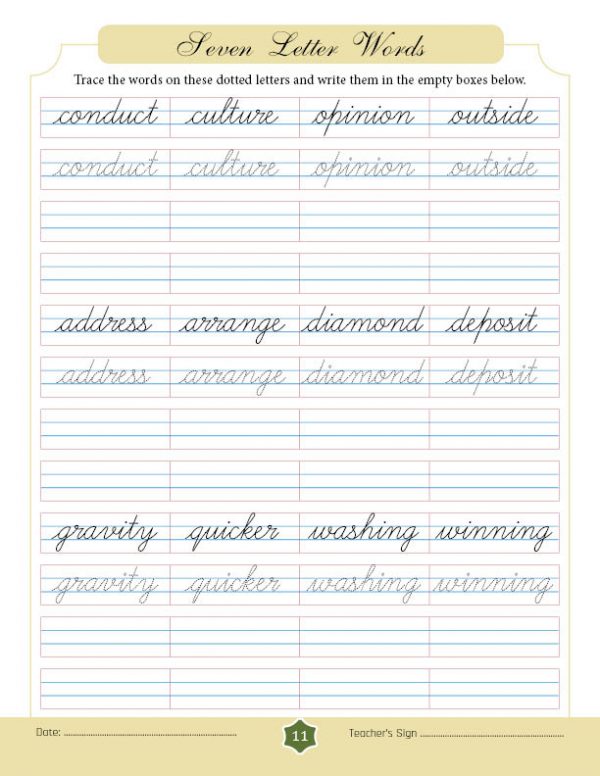 Seven Letter Words
Trace the words on these dotted letters and write them in the empty boxes below.
conduct culture opinion outside
conduct culture opinion outside
address arrange diamond deposit
address arrange diamond deposit
gravity quicker washing winning
gravity quicker washing winning
Date: ........................................ 11 Teacher's Sign ........................................